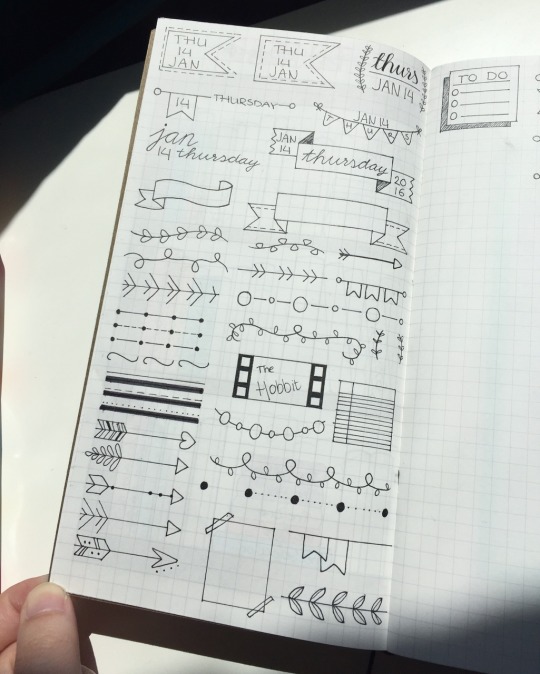 THU
14
JAN
THU
14
JAN
thurs
JAN 14
14
THURSDAY
JAN 14
THURS
jan
14 thursday
JAN
14
thursday
20
16
The
Hobbit
TO DO